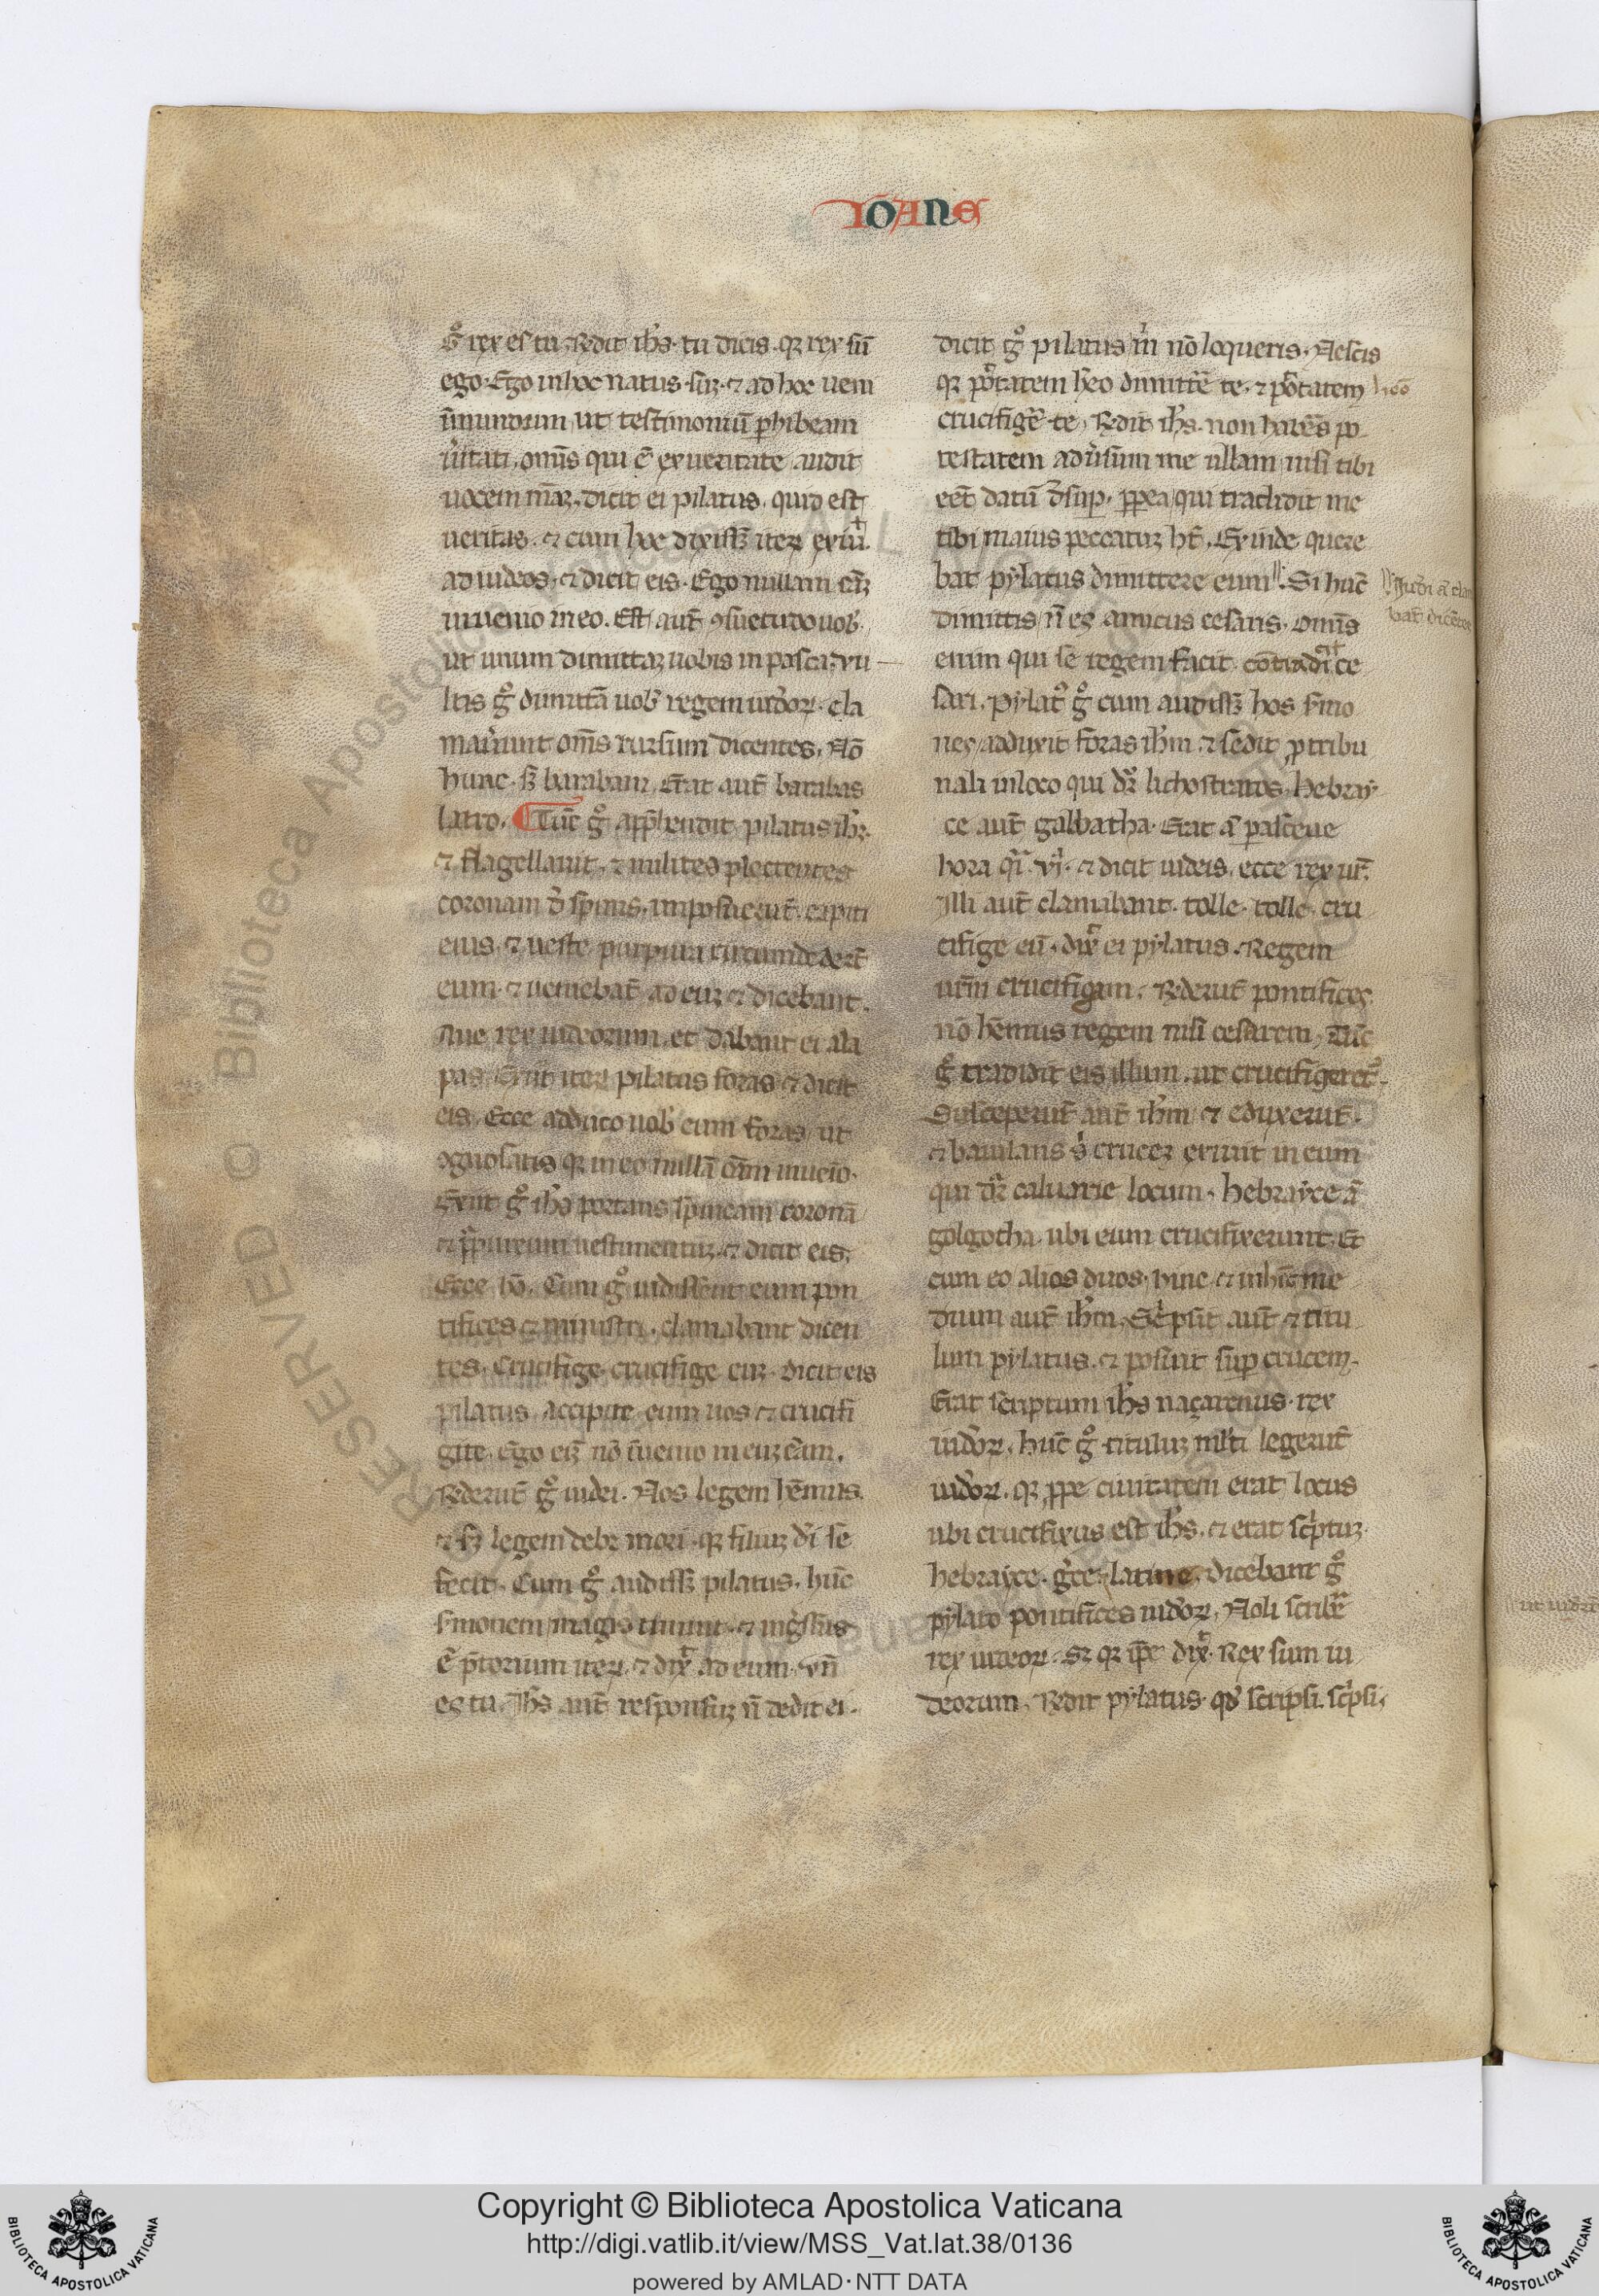 IOANE
G͛ rex es tu. Rn̄dit ih̄s. tu dicis. qꝛ rex sū
ego. Ego in hoc natus sūꝫ. ⁊ ad hoc ueni
ī mundum ut testimoniū ꝑhibeam
ūitati. om̄is qui ē ex ueritate audit
uocem m̄aꝫ. dicit ei pilatus. quid est
ueritas. ⁊ cum hoc dixissꝫ iteꝝ exiuit
ad iudeos. ⁊ dicit eis. Ego nullam cāꝫ
inuenio in eo. Est aut̄ ꝯsuetudo uob̄.
ut unum dimittaꝫ uobis in pasca. vu
ltis g͛ dimittā uob̄ regem iud̄oꝝ. cla
mauerunt om̄s rursum dicentes. Nō
hunc. sꝫ baraban. Erat aut̄ barabas
latro. Tūc g͛ app̄hendit pilatus ih̄ꝫ.
⁊ flagellauit. ⁊ milites plectentes
coronam d̄ spinis. imposuerūt capiti
eius. ⁊ ueste purpura circumdederūt
eum. ⁊ ueniebāt ad euꝫ ⁊ dicebant.
Aue rex iudeorum. et dabant ei ala
pas. Exiit iteꝝ pilatus foras. ⁊ dicit
eis. Ecce adduco uob̄ eum foras ut
ꝯgnoscatis qꝛ in eo nullā cām inueīo.
Exiit g͛ ih̄s portans spineam coronā
⁊ pp̄ureum uestimentuꝫ. ⁊ dicit eis.
Ecce hō. Cum g͛ uidissent eum pon
tifices ⁊ ministri. clamabant dicen
tes. Crucifige crucifige euꝫ. Dicit eis
pilatus. accipite eum uos ⁊ crucifi
gite. Ego eīꝫ nō īuenio in euꝫ cām.
Rn̄derūt g͛ iudei. Nos legem hēmus.
⁊ sꝫ legem debꝫ mori. qꝛ filiuꝫ dī se
fecit. Cum g͛ audissꝫ pilatus. hūc
s̄monem magis timuit. ⁊ inḡssus
ē p̄torium iteꝝ. ⁊ dixit ad eum. vn̄
es tu. Ih̄s aut̄ responsuꝫ n̄ dedit ei.
dicit g͛ pilatus m̄ nō loqueris. Nescis
qꝛ pōtatem hēo dimittē te. ⁊ pōtatem hēo
crucifigē te. Rn̄dit ih̄s. non haberes po
testatem adūsum me ullam nisi tibi
eēt datū dēsup̄. ꝓpea qui tradidit me
tibi maius peccatuꝫ ht̄. Exinde quere
bat pylatus dimittere eum. Si hūc
Iud̄i aū clam
bāt dicētes
dimittis n̄ es amicus cesaris. om̄is
enim qui se regem facit contradicit ce
sari. Pylat᷒ g͛ cum audissꝫ hos s̄mo
nes. adduxit foras ih̄m. ⁊ sedit ꝓ tribu
nali in loco qui dr̄ lichostratos. hebray
ce aut̄ galbatha. Erat aū pasceue
hora q̄i .vj. ⁊ dicit iudeis. ecce rex ur̄.
Illi aut̄ clamabant. tolle. tolle. cru
cifige eū. dix̄ ei pylatus. Regem
ur̄m crucifigam. Rn̄derūt pontifices
nō hēmus regem nisi cesarem. Tūc
g͛ tradidit eis illum. ut crucifigeret᷒.
Susceperūt aut̄ ih̄m. ⁊ eduxerūt.
⁊ baiulans s̄ cruceꝫ exiuit in eum
qui dr̄ caluarie locum. hebrayce aū
golgotha. ubi eum crucifixerunt. Et
cum eo alios duos. hinc ⁊ inhīc me
dium aut̄ ih̄m. Sc̄psit aut̄ ⁊ titu
lum pylatus. ⁊ posuit sup̄ crucem.
Erat scriptum ih̄s naçarenus. rex
iud̄oꝝ. hūc g͛ tituluꝫ ml̄ti legerūt
iud̄oꝝ. qꝛ ꝓpe ciuitatem erat locus
ubi crucifixus est ih̄s. ⁊ erat sc̄ptuꝫ
hebrayce. ḡce. latine. dicebant g͛
pylato pontifices iud̄oꝝ. Noli scribē
rex iudeoꝝ. Sꝫ qꝛ ip̄e dixit. Rex sum iu
deorum. Rn̄dit pylatus. qd̄ scripsi. sc̄psi.
Copyright © Biblioteca Apostolica Vaticana
http://digi.vatlib.it/view/MSS_Vat.lat.38/0136
powered by AMLAD·NTT DATA
BIBLIOTECA APOSTOLICA VATICANA
BIBLIOTECA APOSTOLICA VATICANA